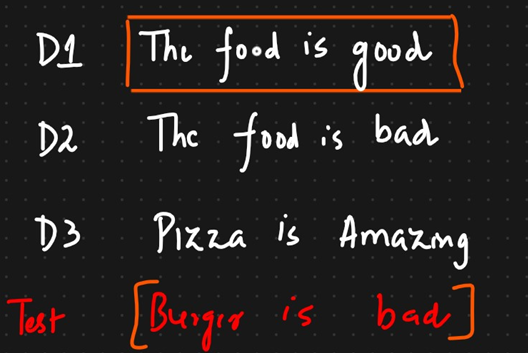 D1 The food is good
D2 The food is bad
D3 Pizza is Amazing
Test [Burger is bad]